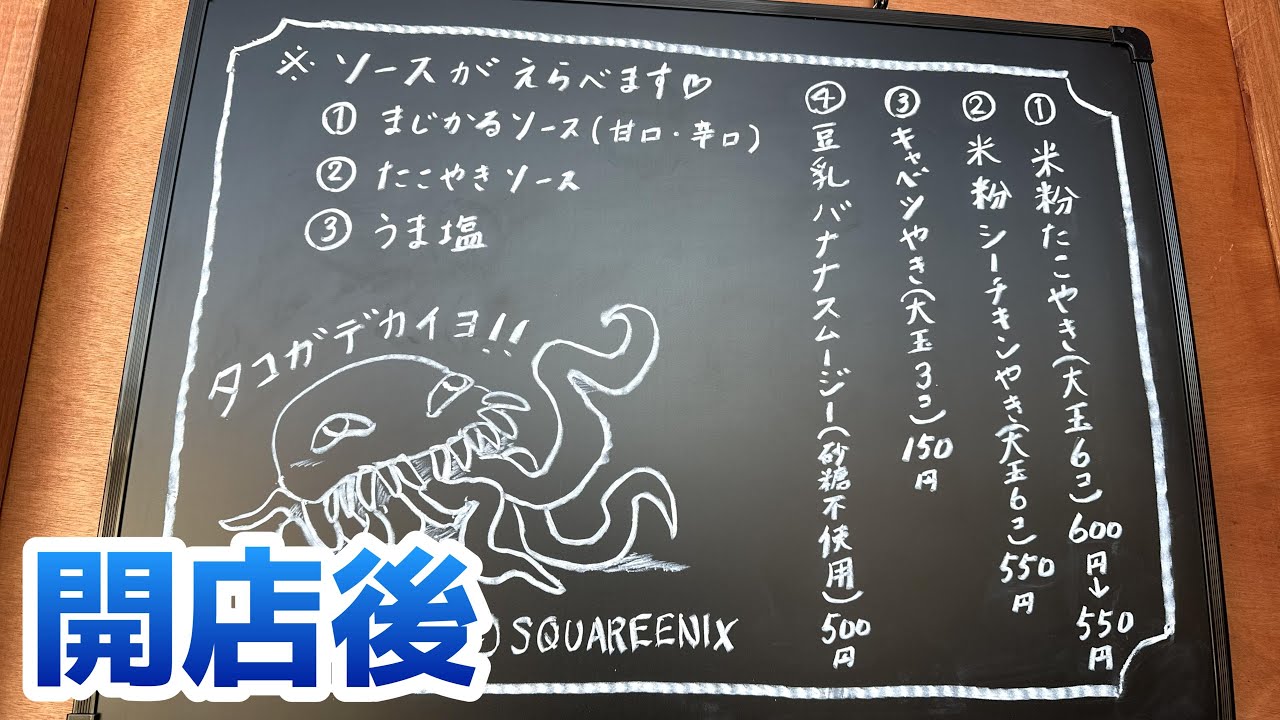 ※ ソースがえらべます♡
① まじかるソース(甘口・辛口)
② たこやきソース
③ うま塩
① 米粉たこやき(大玉6コ) 600円→550円
② 米粉シーチキンやき(大玉6コ) 550円
③ キャベツやき(大玉3コ) 150円
④ 豆乳バナナスムージー(砂糖不使用) 500円
タコガデカイヨ!!
SQUAREENIX
開店後